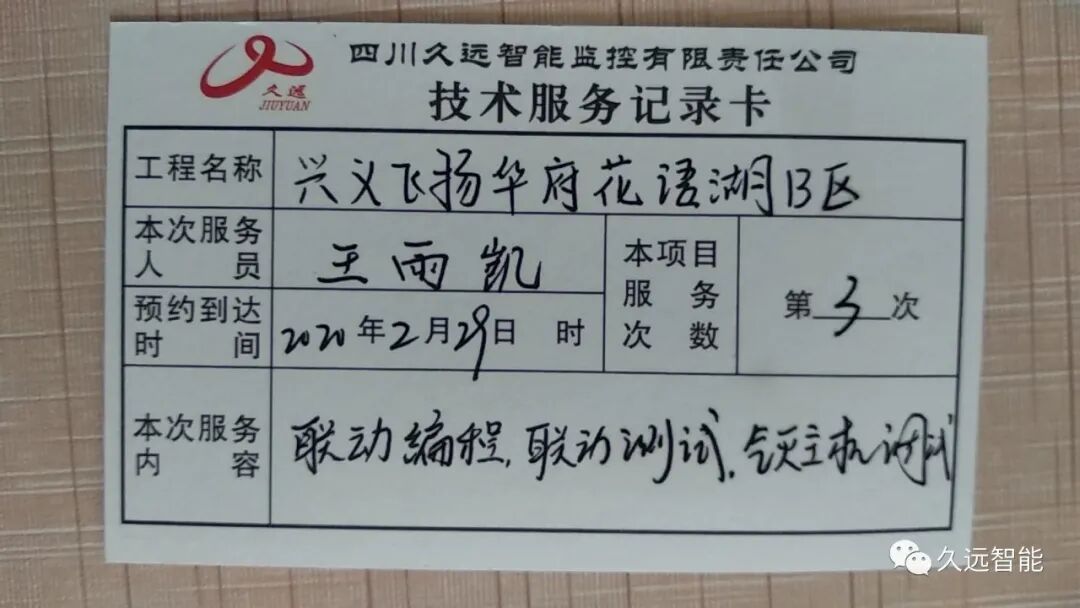 四川久远智能监控有限责任公司
久远
JIUYUAN
技术服务记录卡
工程名称 兴义飞扬华府花语湖B区
本次服务人员 王雨凯
本项目服务次数 第3次
预约到达时间 2020年2月29日 时
本次服务内容 联动编程,联动测试,气灭主机调试
久远智能